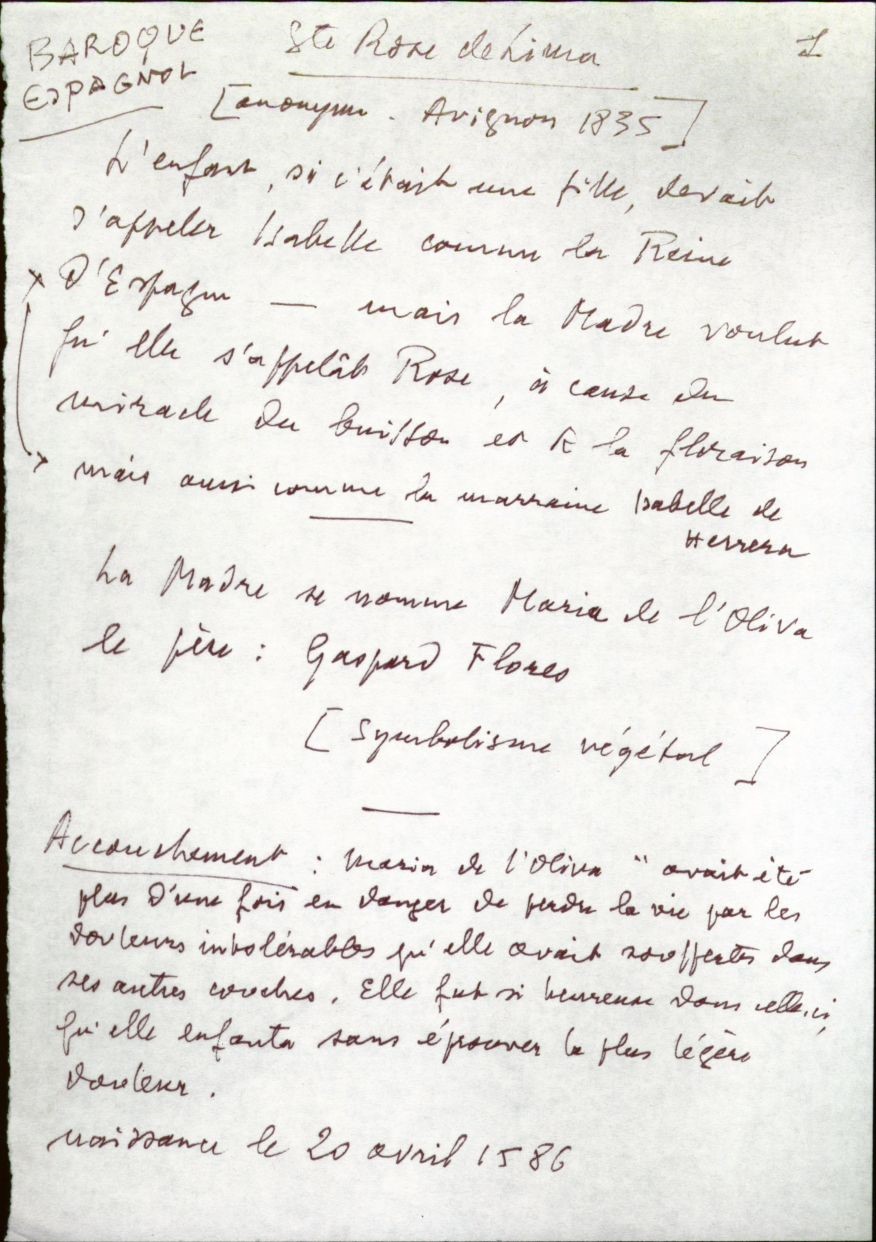 BAROQUE
ESPAGNOL
Ste Rose de Lima
1
[anonyme - Avignon 1835]
L'enfant, si c'était une fille, devait
s'appeler Isabelle comme la Reine
D'Espagne — mais la Madre voulut
qu'elle s'appelât Rose, à cause du
miracle du buisson et de la floraison
mais aussi comme la marraine Isabelle de
Herrera
La Madre se nomme Maria de l'Oliva
le père : Gaspard Flores
[Symbolisme végétal]
Accouchement : Maria de l'Oliva "avait été
plus d'une fois en danger de perdre la vie par les
douleurs intolérables qu'elle avait souffertes dans
ses autres couches. Elle fut si heureuse dans celle-ci,
qu'elle enfanta sans éprouver la plus légère
douleur.
naissance le 20 avril 1586